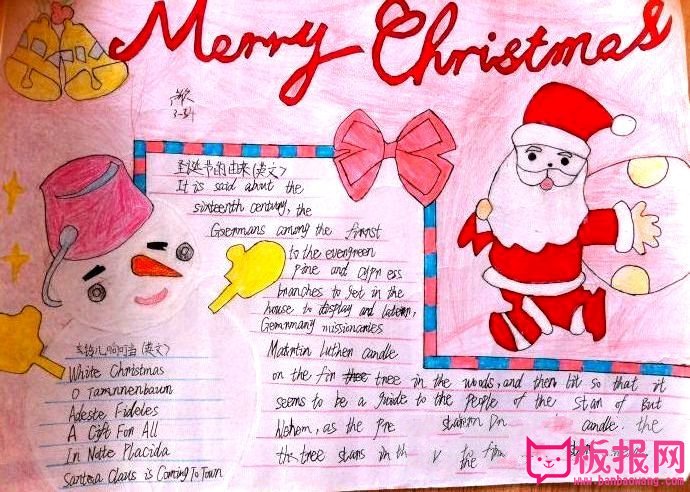 Merry Christmas
3-34
圣诞节的由来(英文)
It is said about the
sixteenth century, the
Goermans among the finnst
to the evergreen
pine and cypress
branches to get in the
house to display and latern,
Gemnmany missionaries
Matntin Luthen candle
on the fin tree in the woods, and then lit so that it
seems to be a guide to the people of the Stan of But
Wehem, as the pre candle. the
the tree stans in th to the
铃儿响叮当(英文)
White Christmas
O Tamnnenbaun
Adeste Fideles
A Gift For All
In Note Placida
Santosa Claus is Coming To Town
板报网
www.banbaowang.com